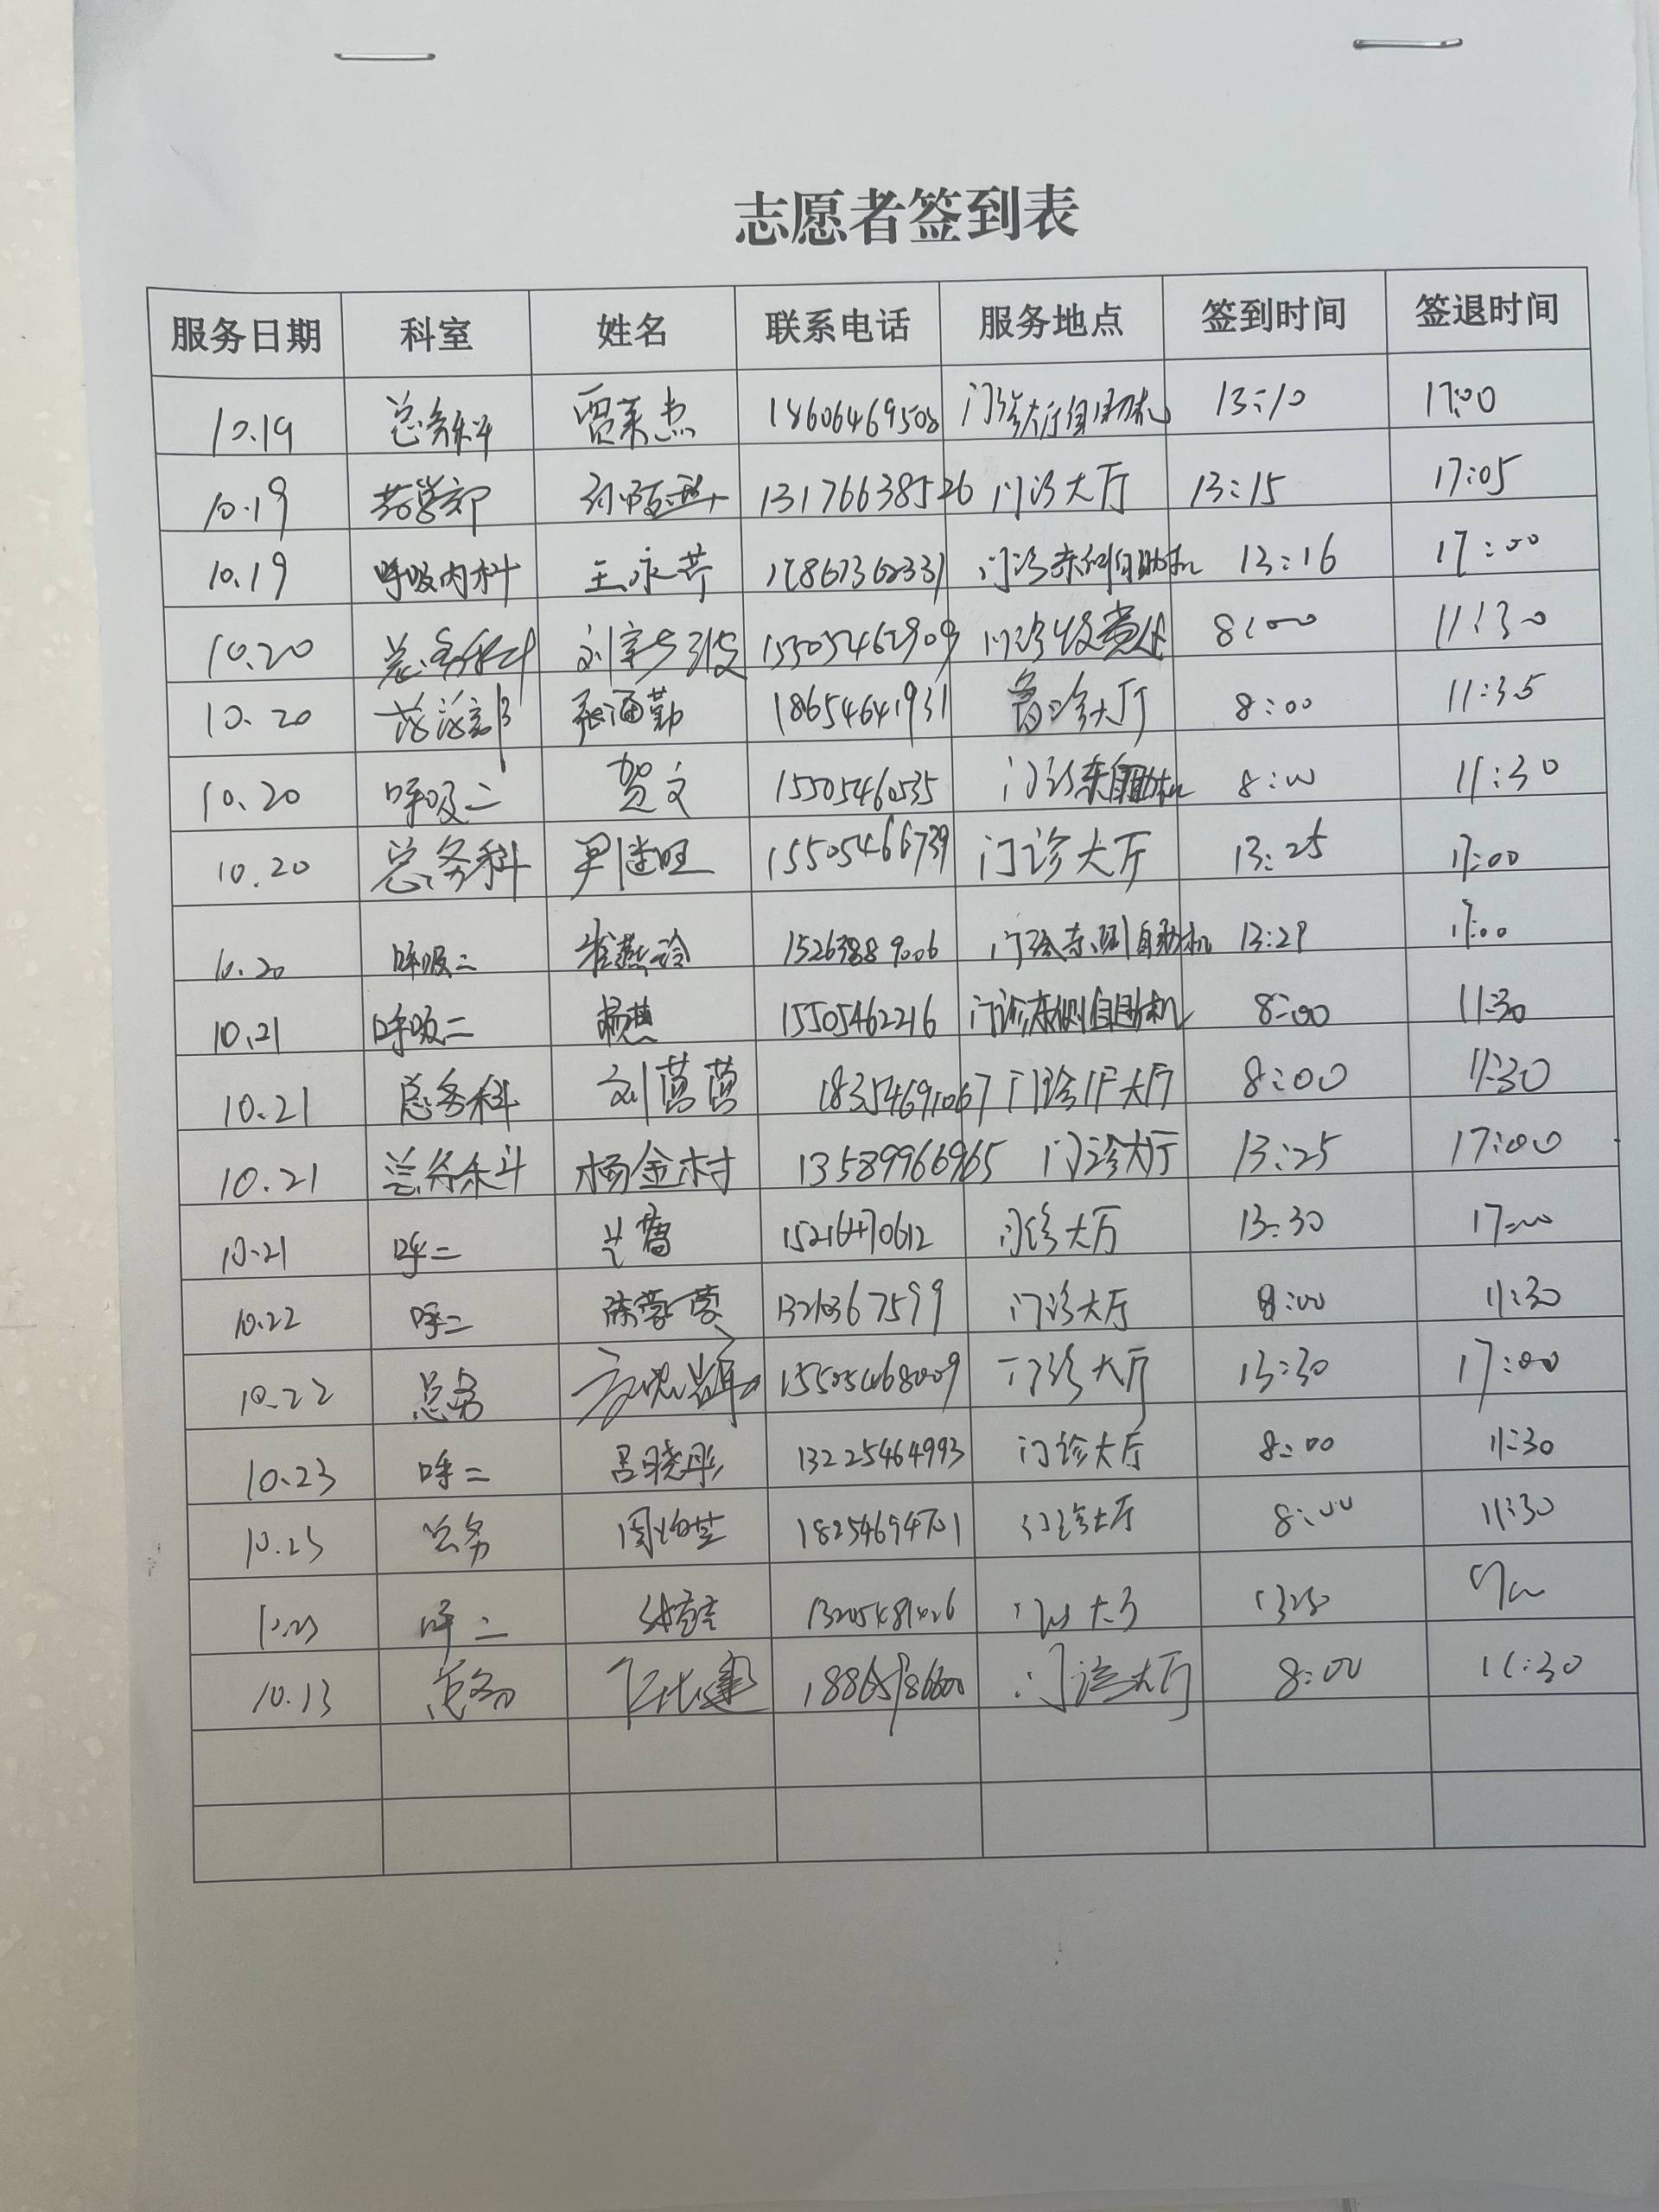 志愿者签到表
服务日期 科室 姓名 联系电话 服务地点 签到时间 签退时间
10.19 总务科 贾来杰 18606469508 门诊大厅自助机 13:10 17:00
10.19 药学部 13176638526 门诊大厅 13:15 17:05
10.19 呼吸内科 王永芹 17867362331 门诊东侧自助机 13:16 17:00
10.20 总务科 15505462909 门诊收费处 8:00 11:30
10.20 张通勤 18654641931 大厅 8:00 11:35
10.20 呼吸二 贺文 15505460535 门诊东自助机 8:00 11:30
10.20 总务科 尹继旺 15505466739 门诊大厅 13:25 17:00
10.20 呼吸二 崔燕玲 15263889006 门诊东侧自助机 13:29 17:00
10.21 呼吸二 杨燕 15505462216 门诊东侧自助机 8:00 11:30
10.21 总务科 刘莒莒 18354691067 门诊 大厅 8:00 11:30
10.21 总务科 杨金村 13589966965 门诊大厅 13:25 17:00
10.21 呼二 15216470612 门诊大厅 13:30 17:00
10.22 呼二 陈蒙蒙 13210367599 门诊大厅 8:00 11:30
10.22 总务 15505468009 门诊大厅 13:30 17:00
10.23 呼二 吕晓彤 13225464993 门诊大厅 8:00 11:30
10.23 总务 18254694701 门诊大厅 8:00 11:30
10.23 呼二 大厅
10.13 总务 门诊大厅 8:00 11:30